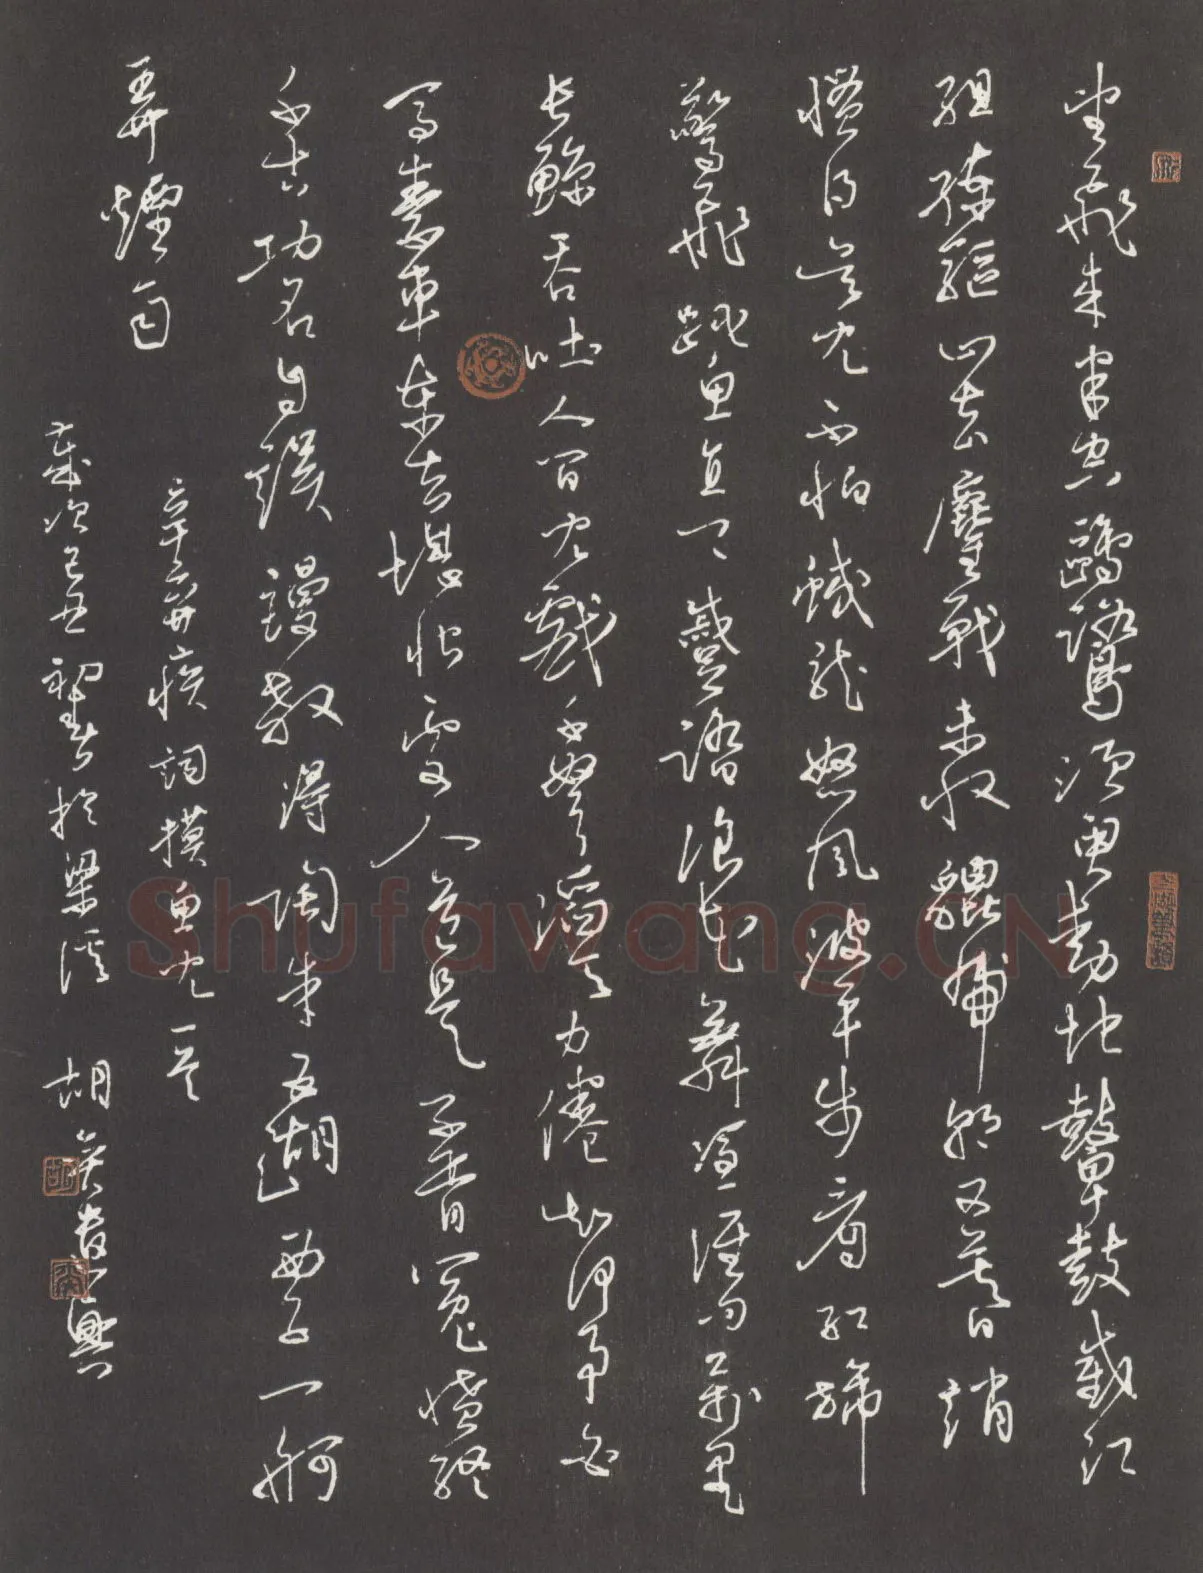 望飛來半空鷗鷺須臾動地鼙鼓截江
組練驅山去鏖戰未收貔虎朝又暮誚
慣得吳兒不怕蛟龍怒風波平步看紅旆
驚飛跳魚直上蹙踏浪花舞憑誰問萬里
長鯨吞吐人間兒戲千弩滔天力倦知何事白
馬素車東去堪恨處人道是子胥冤憤終
千古功名自誤謾教得陶朱五湖西子一舸
弄煙雨
辛弃疾詞摸魚兒一首
歲次己丑初春於梁溪 胡
Shufawang.CN